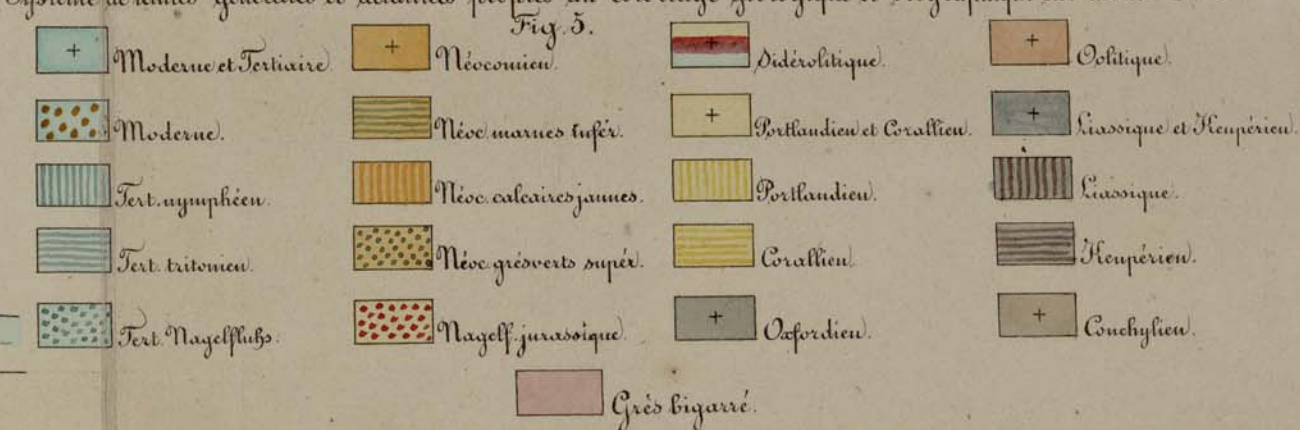 Fig. 5.
Moderne et Tertiaire.
Moderne.
Tert. nymphéen.
Tert. tritonien.
Tert. Nagelfluhs.
Néocomien.
Néoc. marnes infér.
Néoc. calcaires jaunes.
Néoc. grés verts supér.
Nagelf. jurassique.
Sidérolitique.
Portlandien et Corallien.
Portlandien.
Corallien.
Oxfordien.
Oolitique.
Liassique et Keupérien.
Liassique.
Keupérien.
Conchylien.
Grés bigarré.